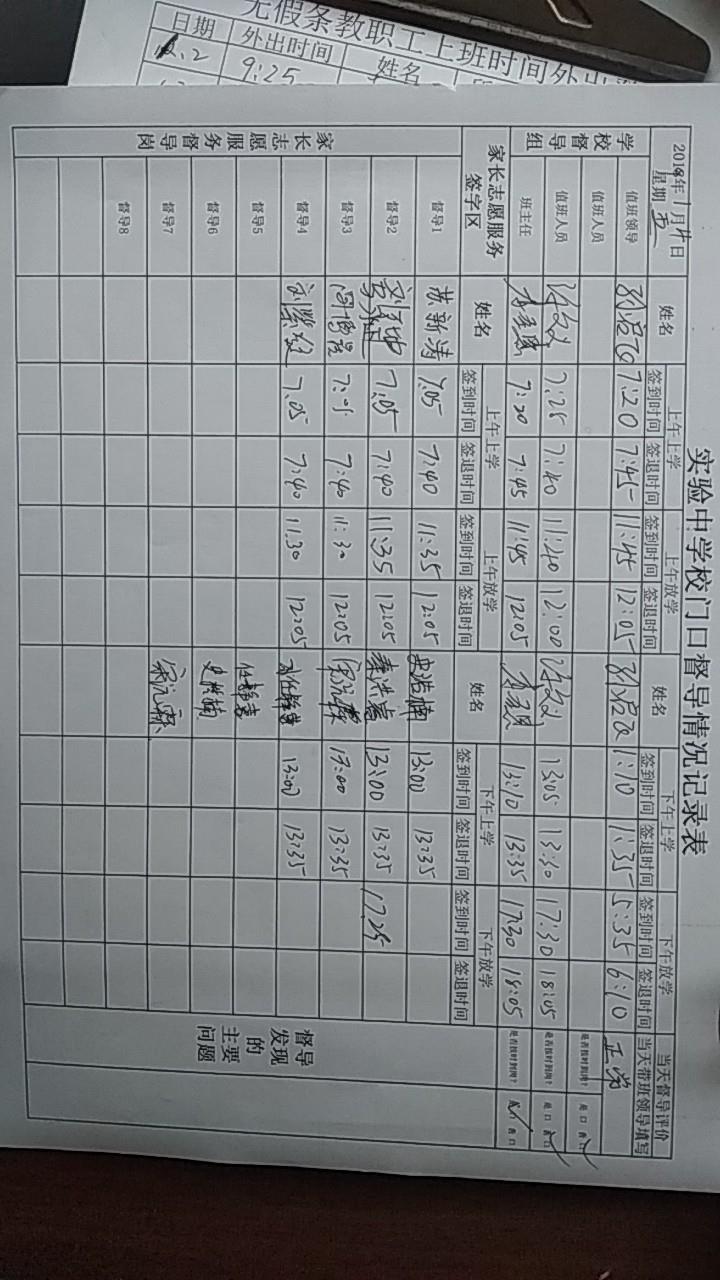 无假条教职工上班时间外出
日期 外出时间 姓名
9:25
实验中学校门口督导情况记录表
2018年1月 日 星期 五
姓名 上午上学 上午放学 姓名 下午上学 下午放学 当天督导评价
签到时间 签退时间 签到时间 签退时间 签到时间 签退时间 签到时间 签退时间 当天带班领导填写
学校督导组
值班领导 7:20 7:45 11:45 12:05 1:10 1:35 5:35 6:10 正常
值班人员 是否按时到岗? 是 口 否 口
值班人员 7:28 7:40 11:40 12:00 13:05 13:30 17:30 18:05 是否按时到岗? 是 口 否 口
班主任 7:20 7:45 11:45 12:05 13:10 13:35 17:30 18:05 是否按时到岗? 否 口
家长志愿服务签字区 姓名 上午上学 上午放学 姓名 下午上学 下午放学
签到时间 签退时间 签到时间 签退时间 签到时间 签退时间 签到时间 签退时间
家长志愿服务督导岗
督导1 苏新涛 7:05 7:40 11:35 12:05 13:00 13:35
督导2 7:05 7:40 11:35 12:05 秦洪嘉 13:00 13:35 17.25
督导3 7:40 11:30 12:05 13:35
督导4 7.05 7:40 11.30 12:05 13:00 13:35
督导5
督导6
督导7
督导8
督导发现的主要问题